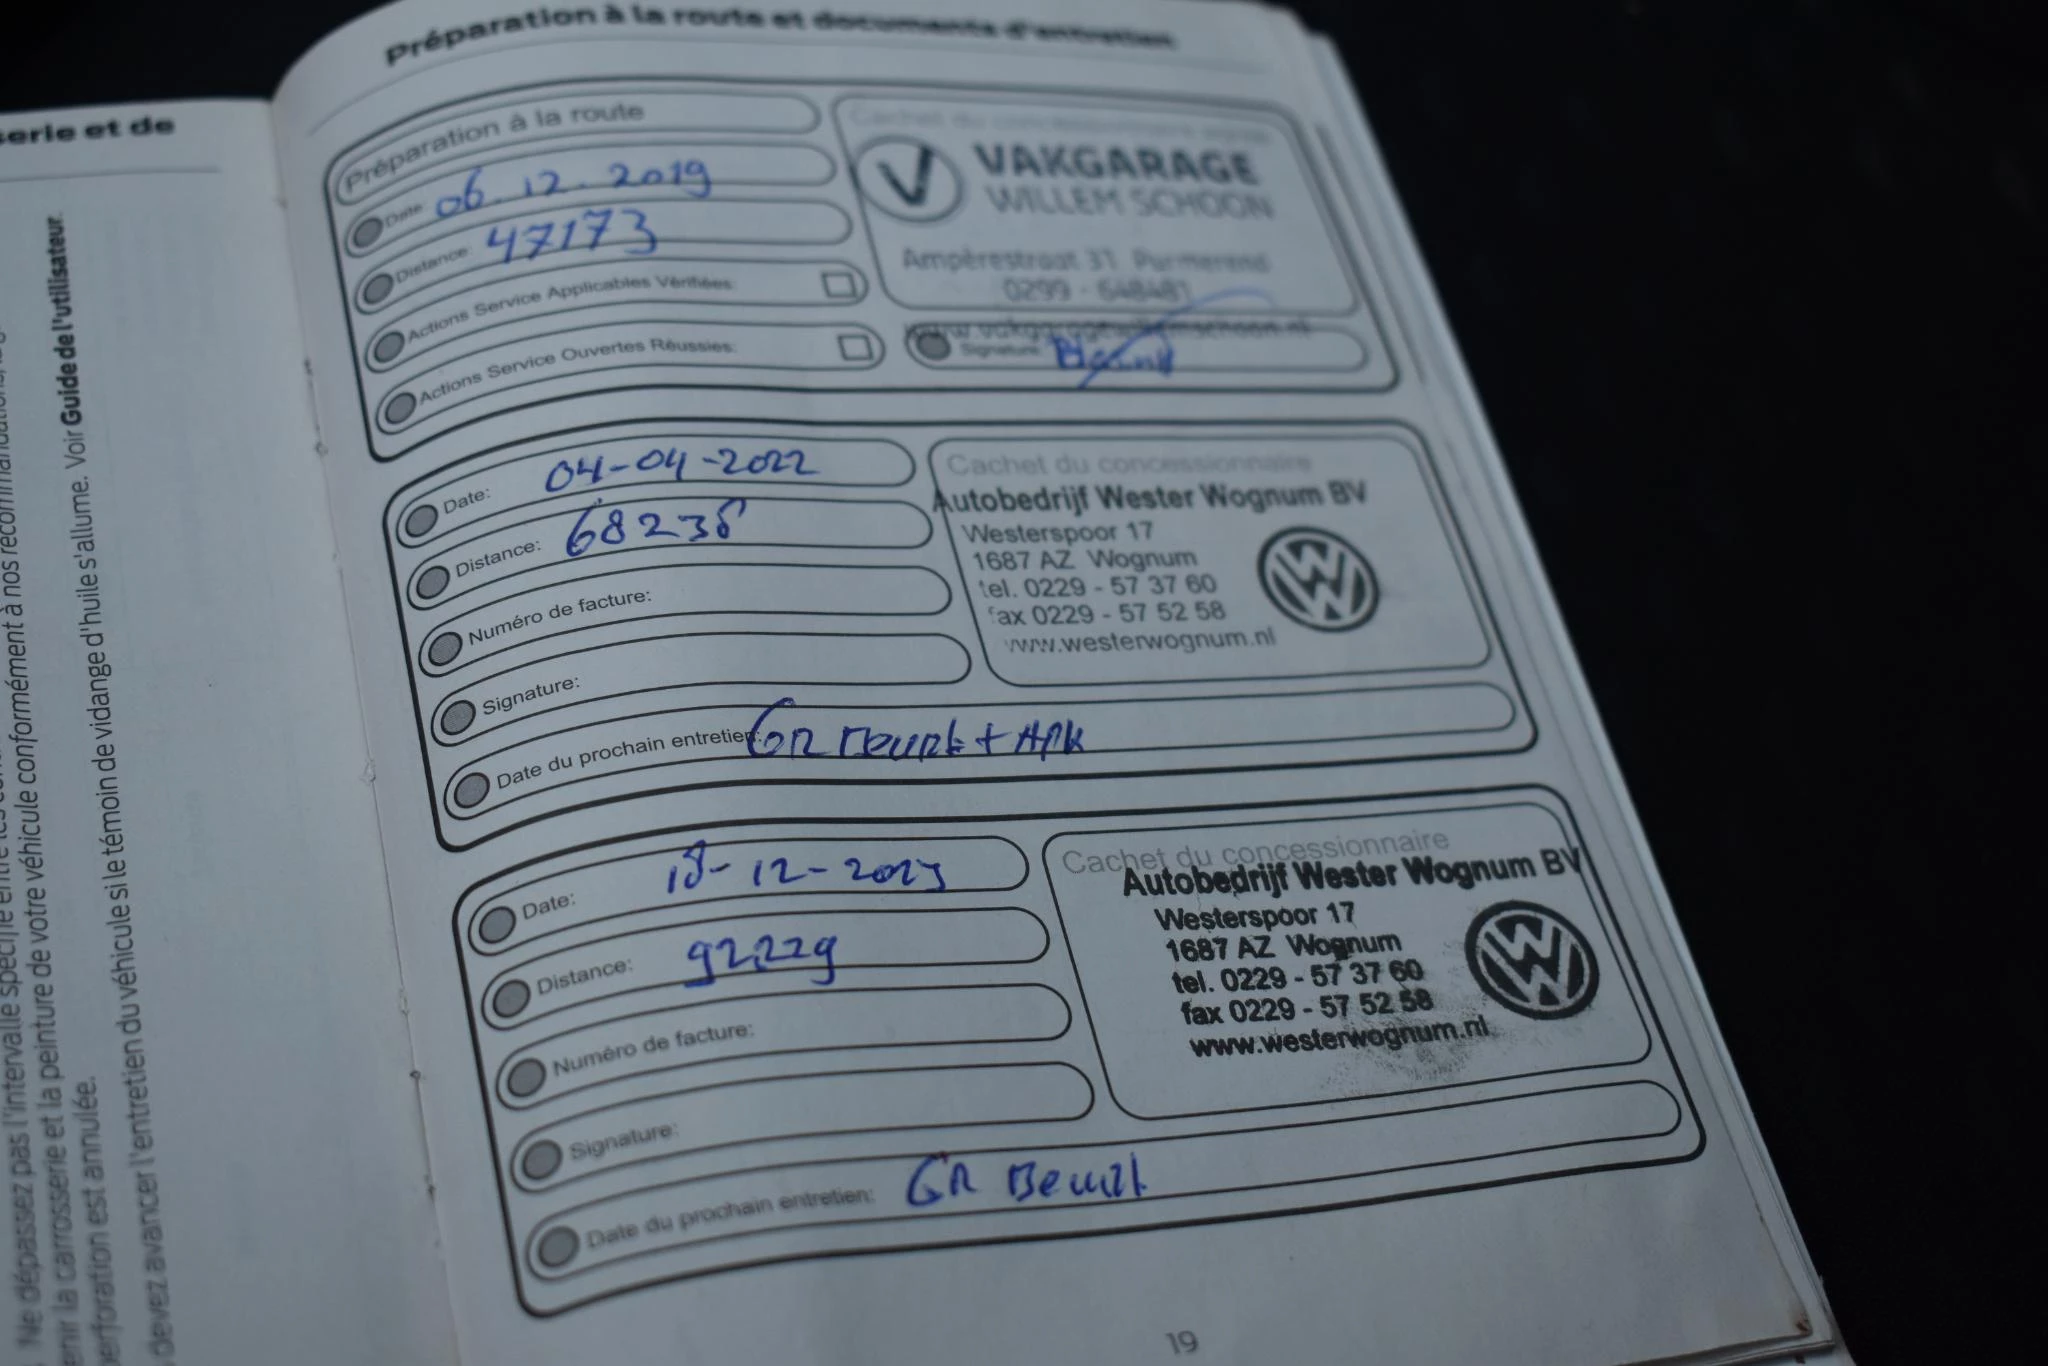 serie et de
Ne dépassez pas l'intervalle spécifié entre les
enir la carrosserie et la peinture de votre véhicule conformément à nos recommandations,
perforation est annulée.
devez avancer l'entretien du véhicule si le témoin de vidange d'huile s'allume. Voir Guide de l'utilisateur.
Préparation à la route et documents d'entretien
Préparation à la route
Date: 06.12.2019
Distance: 47173
Actions Service Applicables Vérifiées:
Actions Service Ouvertes Réussies:
Cachet du concessionnaire
VAKGARAGE
WILLEM SCHOON
Ampèrestraat 31 Purmerend
0299 - 648481
www.vakgaragewillemschoon.nl
Signature:
Date: 04-04-2022
Distance: 68238
Numéro de facture:
Signature:
Date du prochain entretien: GR Beurt + APK
Cachet du concessionnaire
Autobedrijf Wester Wognum BV
Westerspoor 17
1687 AZ Wognum
tel. 0229 - 57 37 60
fax 0229 - 57 52 58
www.westerwognum.nl
Date: 18-12-2023
Distance: 92.229
Numéro de facture:
Signature:
Date du prochain entretien: GR Beurt
Cachet du concessionnaire
Autobedrijf Wester Wognum BV
Westerspoor 17
1687 AZ Wognum
tel. 0229 - 57 37 60
fax 0229 - 57 52 58
www.westerwognum.nl
19